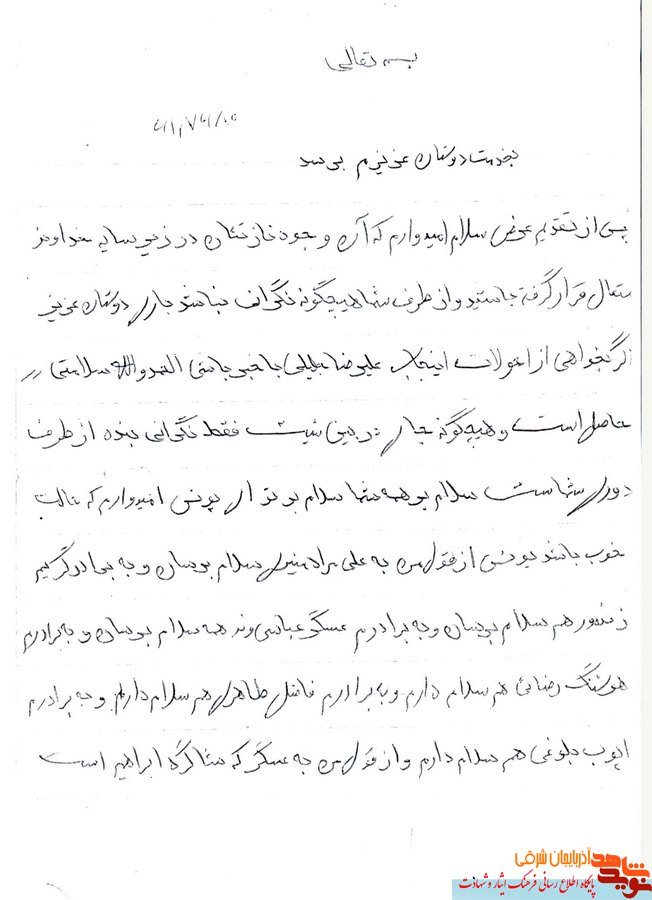 بسمه تعالی
بخدمت دوستان عزیزم برسد
پس از تقدیم عرض سلام امیدوارم که آن وجود نازنتان در زیر سایه خداوند
متعال قرار گرفته باشید و از طرف شما هیچگونه نگرانی نباشد باری دوستان عزیز
اگر بخواهی از احولات اینجانب علیرضا جلیلی باخبر باشی الحمدوالله سلامتی
حاصل است و هیچگونه جای در بین نیست فقط نگرانی بنده از طرف
دوری شماست سلام بر همه شما سلام بر تو ای یونس امیدوارم که حالت
خوب باشد یونس از قول من به علی مرادمنیری سلام برسان و به برادر کریم
هم سلام برسان و به برادرم عسگر عباسی وند هم سلام برسان و به برادرم
هوشنگ رضائی هم سلام دارم و به برادرم فاضل طاهری هم سلام دارم و به برادرم
ایوب بلوغی هم سلام دارم و از قول من به عسگر که شاگرد ابراهیم است
نوید شاهد آذربایجان شرقی
پایگاه اطلاع رسانی فرهنگ ایثار و شهادت